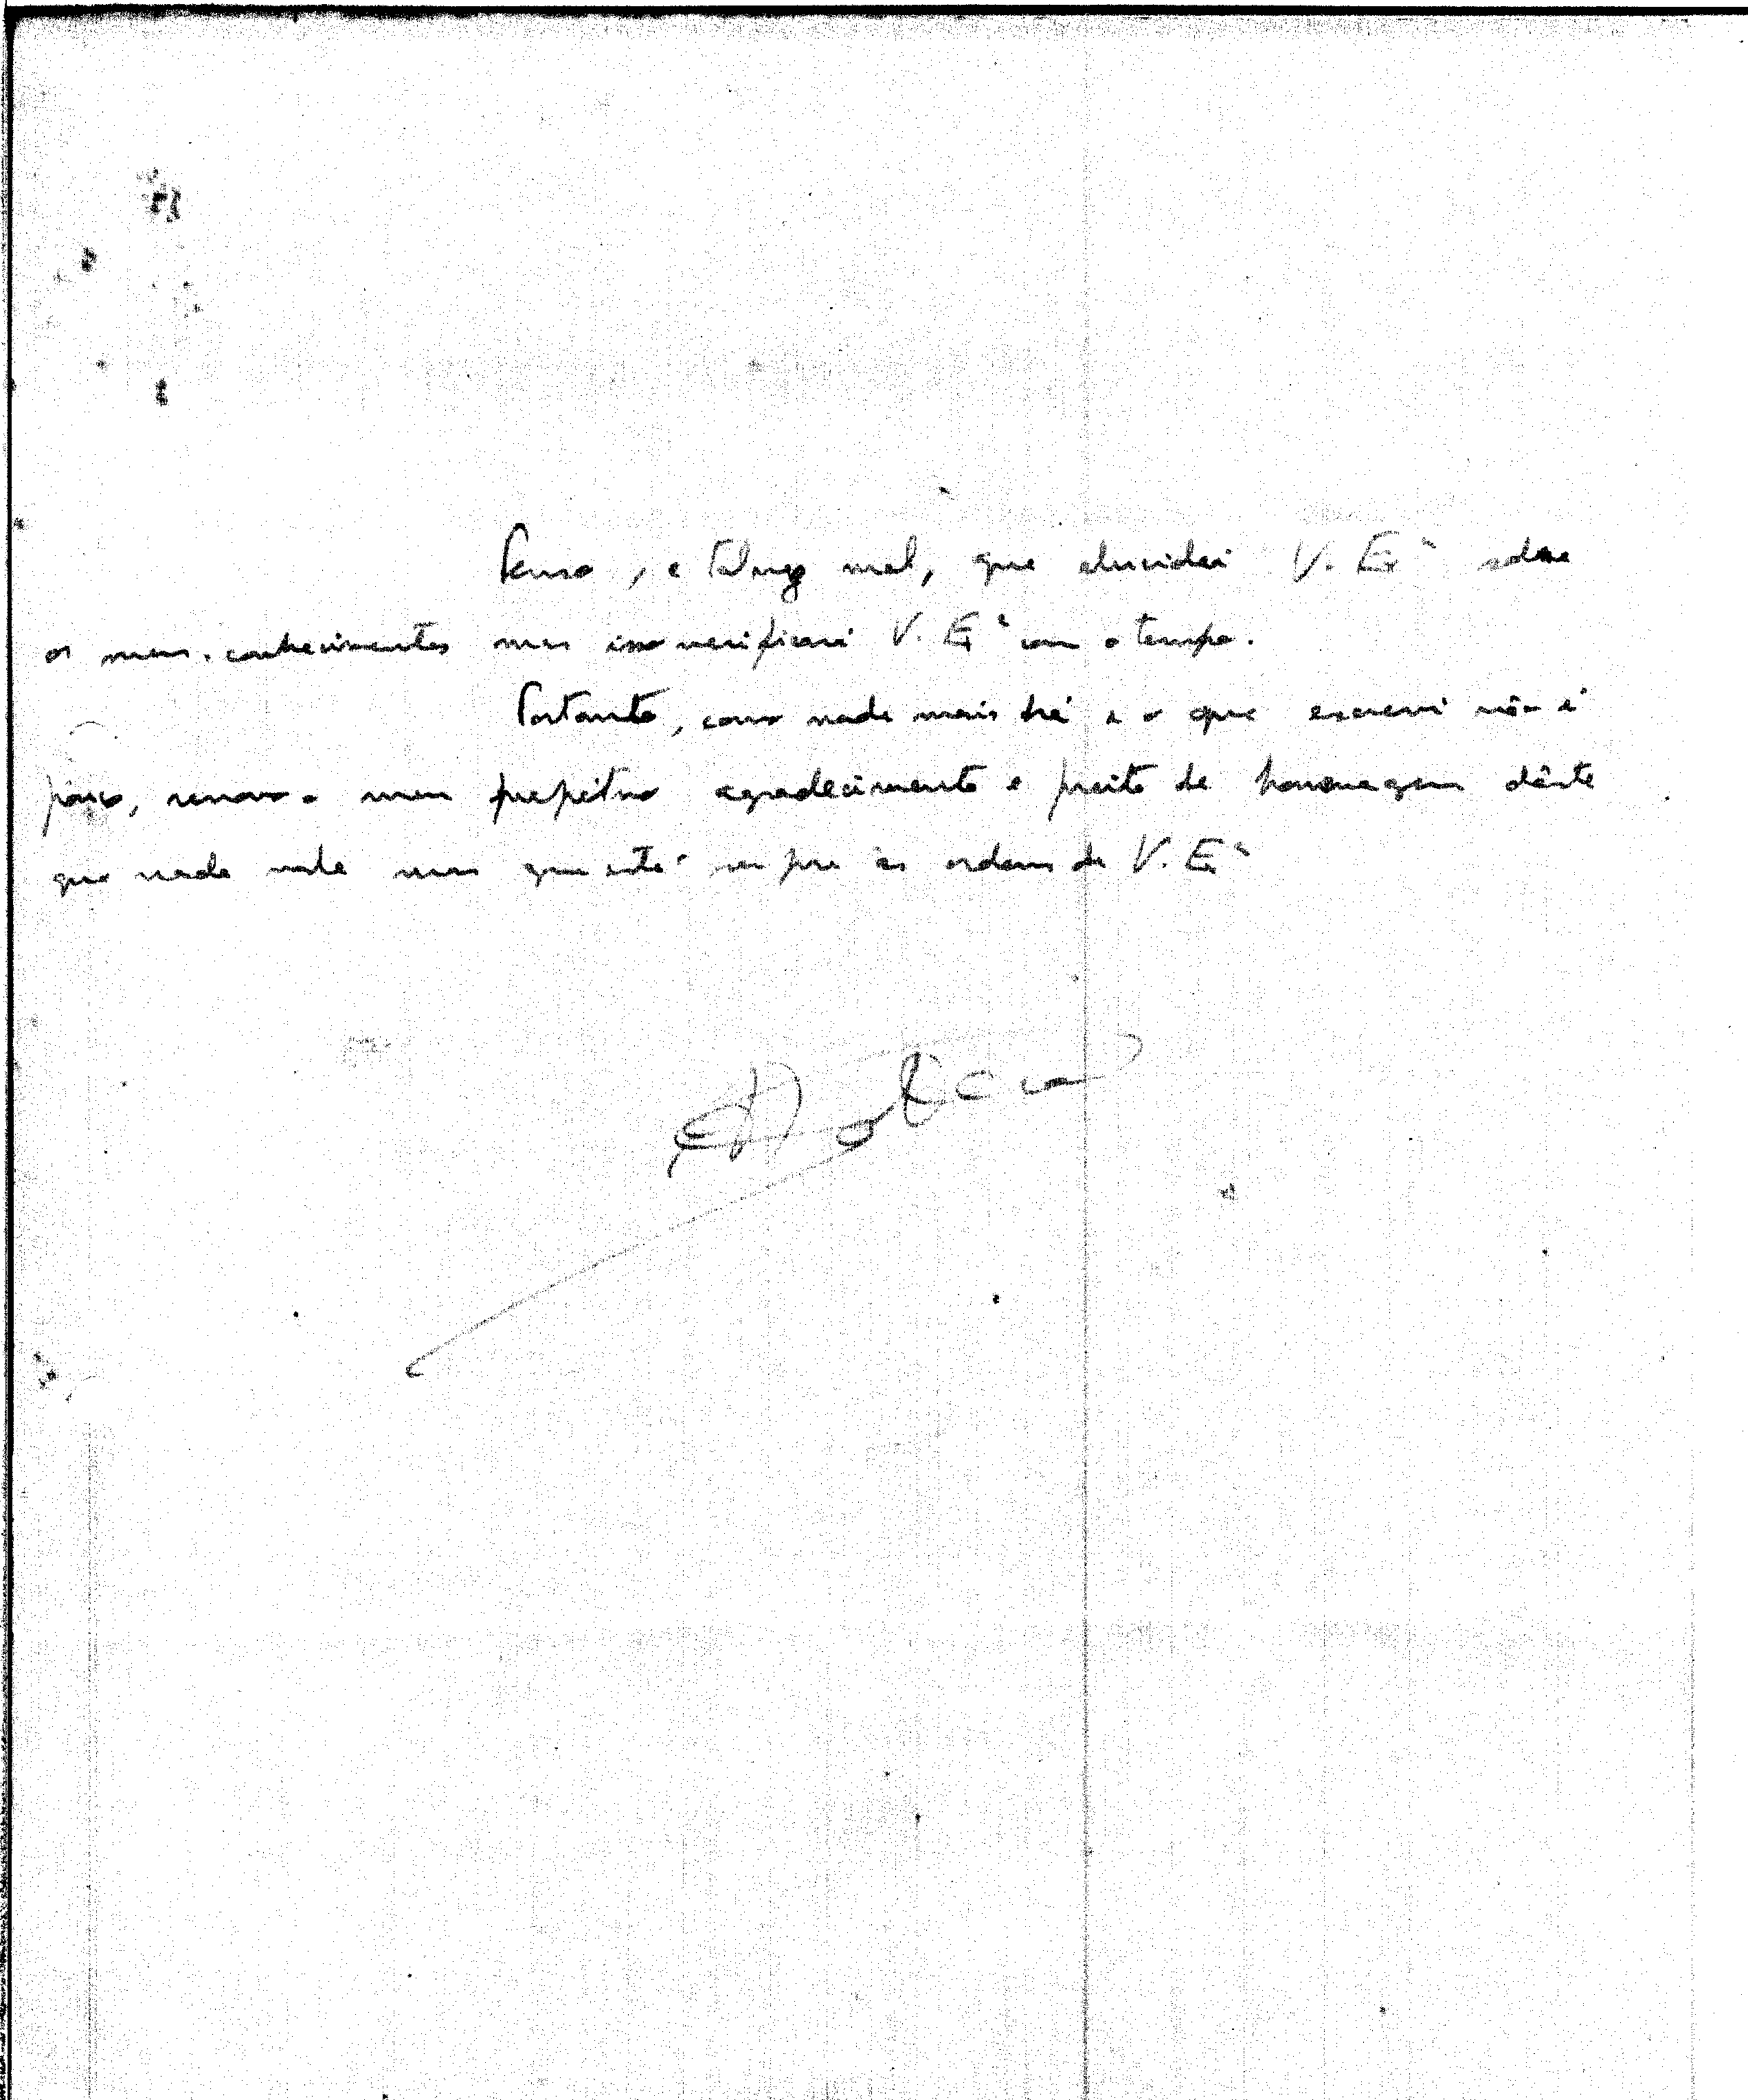 Penso, e talvez mal, que elucidei V. Exª sobre
os meus conhecimentos mas isso verificará V. Exª com o tempo.
Portanto, como nada mais há e o que escrevi não é
pouco, renovo o meu prepétuo agradecimento e preito de homenagem dêste
que nada vale mas que está sempre às ordens de V. Exª